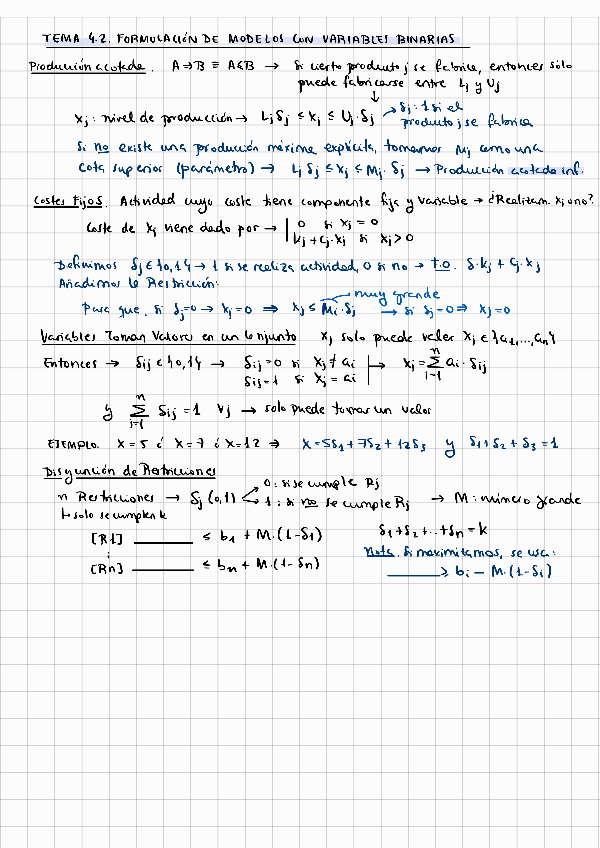 TEMA 4.2. FORMULACIÓN DE MODELOS CON VARIABLES BINARIAS
Producción acotada. A⇒B ≡ A≤B → Si cierto producto j se fabrica, entonces sólo
puede fabricarse entre Lj y Uj
xj: nivel de producción → Lj δj ≤ xj ≤ Uj·δj → δj: 1 si el
producto j se fabrica
Si no existe una producción máxima explícita, tomamos Mj como una
cota superior (parámetro) → Lj δj ≤ xj ≤ Mj·δj → Producción acotada inf.
Costes Fijos. Actividad cuyo coste tiene componente fija y variable → ¿Realizam. xj o no?
Coste de xj viene dado por → | 0 si xj = 0
kj + cj·xj si xj > 0
Definimos δj ∈ {0,1} → 1 si se realiza actividad, 0 si no → F.O. δ·kj + cj·xj
Añadimos la Restricción:
Para que, si δj=0 → xj = 0 ⇒ xj ≤ Mj·δj → si δj=0 ⇒ xj=0
muy grande
Variables Toman Valores en un Conjunto xj solo puede valer xj ∈ {a1,...,an}
Entonces → δij ∈ {0,1} → δij = 0 si xj ≠ ai | → xj = Σ ai·δij
n
i=1
δij = 1 si xj = ai
y Σ δij = 1 ∀j → solo puede tomar un valor
n
i=1
EJEMPLO. x = 5 ó x = 7 ó x = 12 ⇒ x = 5δ1 + 7δ2 + 12δ3 y δ1+δ2+δ3 = 1
Disyunción de Restricciones
n Restricciones → δj (0,1) 0: si se cumple Rj
1: si no se cumple Rj → M: número grande
↳ solo se cumplen k
δ1+δ2+...+δn = k
[R1] ______ ≤ b1 + M·(1-δ1)
⋮
[Rn] ______ ≤ bn + M·(1-δn)
Nota. Si maximizamos, se usa:
______ ≥ bi − M·(1-δi)